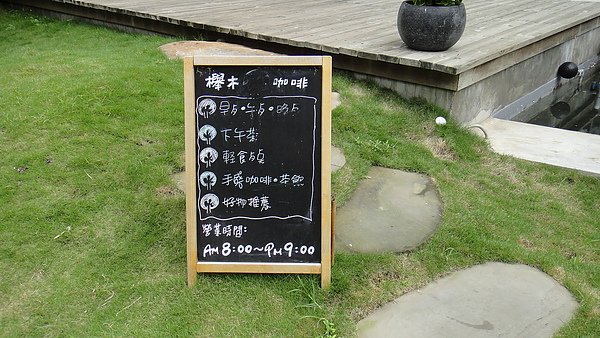 櫸木 咖啡
早点·午点·晚点
下午茶
輕食点
手醬咖啡·茶点
好物推薦
營業時間:
AM 8:00~PM 9:00